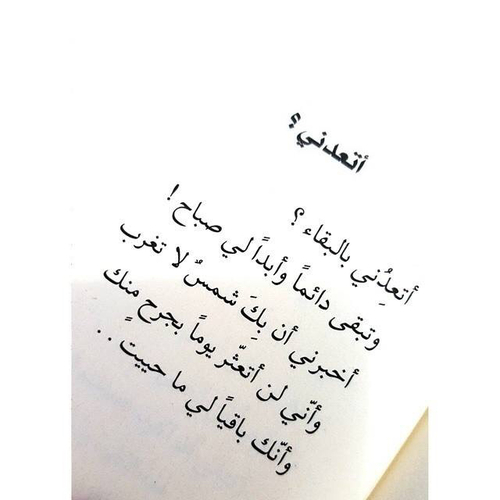 أتعدني؟
أتعدِني بالبقاء ؟
وتبقى دائماً وأبداً لي صباح !
أخبرني أن بِكَ شمسٌ لا تغرب
وأنّي لن أتعثّر يوماً بجرح منك
وأنّك باقياً لي ما حييت . .